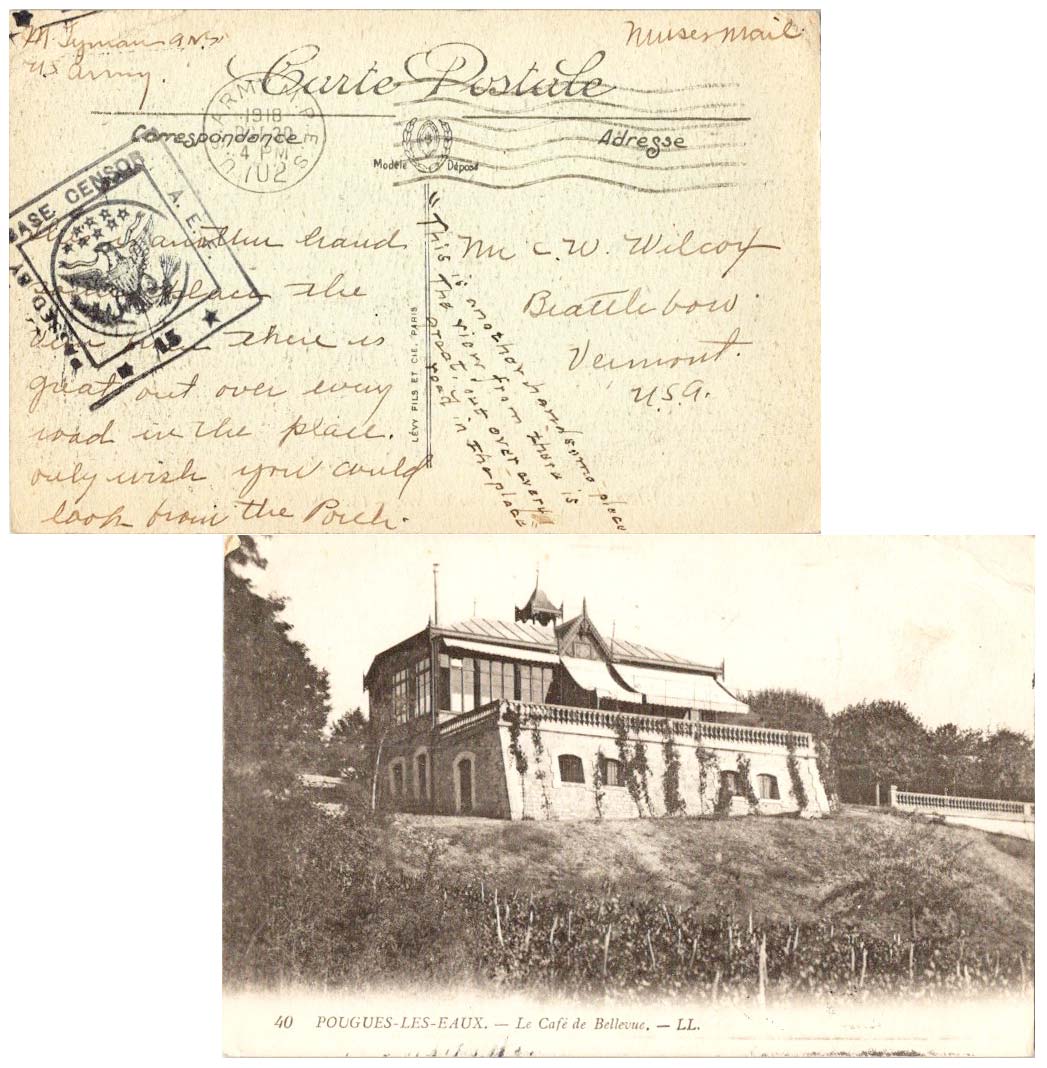 M Tyman anc
U.S. Army.
Nurses Mail
Carte Postale
Correspondance
Adresse
Modèle Déposé
U.S. ARMY M.P.E.S.
1918
4 PM
702
PASSED BY BASE CENSOR
A. E. F.
15
This is another hand
some place the
view from there is
great out over every
road in the place.
only wish you could
look from the Porch.
LÉVY FILS ET CIE, PARIS
"This is another handsome place
the view from there is
great, out over every
road in the place
Mr C. W. Wilcox
Brattlebow
Vermont.
U.S.A.
40 POUGUES-LES-EAUX. — Le Café de Bellevue. — LL.